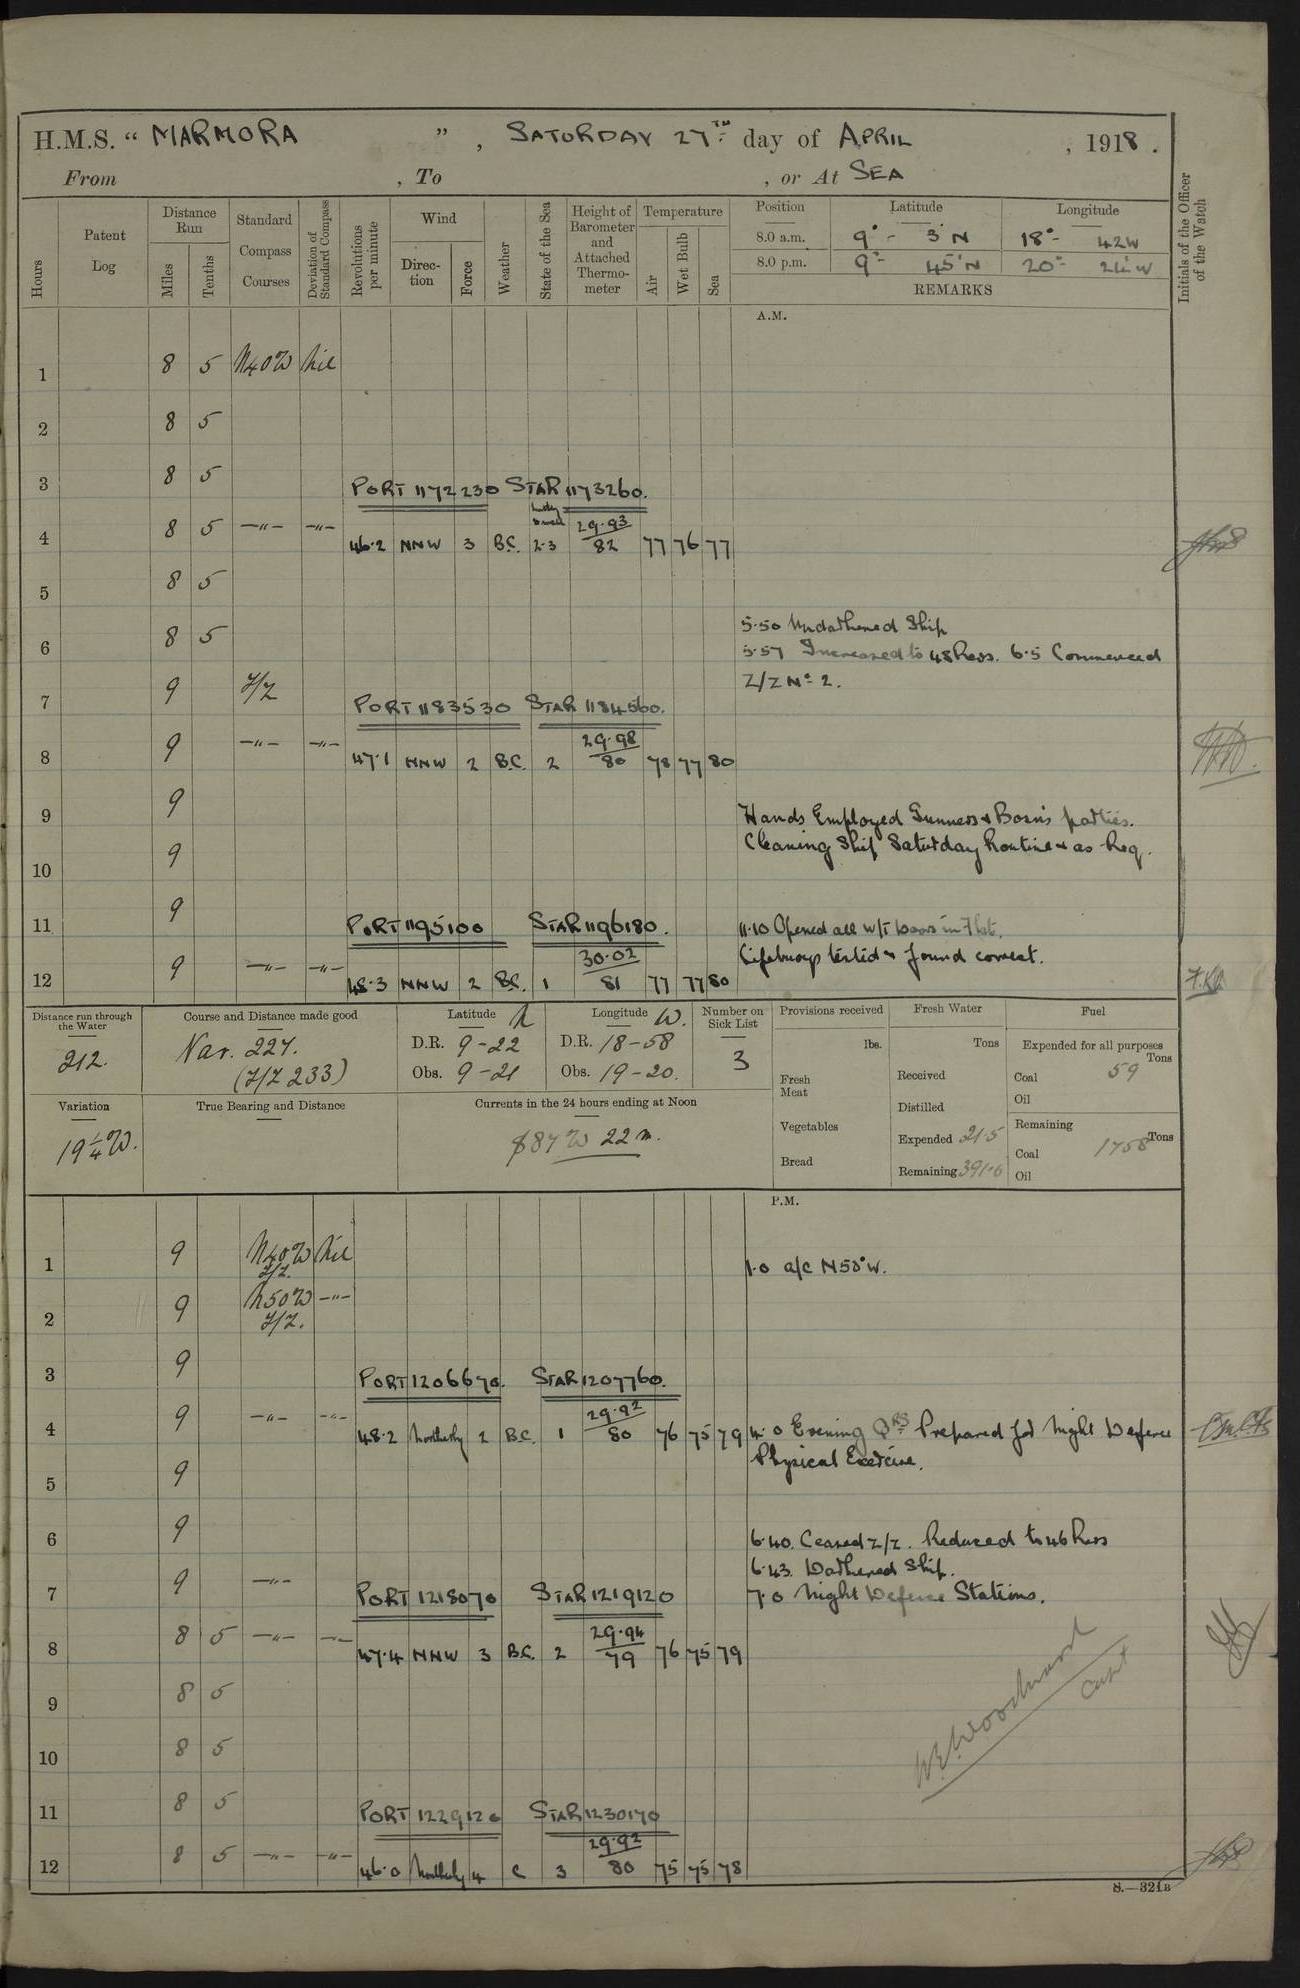 H.M.S. “ MARMORA ” , SATURDAY 27TH day of APRIL , 1918 .
From , To , or At SEA
Hours
Patent Log
Distance Run
Miles
Tenths
Standard Compass Courses
Deviation of Standard Compass
Revolutions per minute
Wind
Direction
Force
Weather
State of the Sea
Height of Barometer and Attached Thermometer
Temperature
Air
Wet Bulb
Sea
Position Latitude Longitude
8.0 a.m. 9° - 3'N 18° - 42W
8.0 p.m. 9° - 45'N 20° - 24'W
REMARKS
Initials of the Officer of the Watch
A.M.
1 8 5 N40W Nil
2 8 5
3 8 5
PORT 1172230 STAR 1173260.
4 8 5 —"— —"— 46.2 NNW 3 B.C. 2-3 29.93 82 77 76 77
5 8 5
5.50 Undarkened Ship
6 8 5
5.57 Increased to 48 Revs. 6.5 Commenced
Z/Z No 2.
7 9 Z/Z
PORT 1183530 STAR 1184560.
8 9 —"— —"— 47.1 NNW 2 B.C. 2 29.98 80 78 77 80
9 9
Hands Employed Gunners & Bosn's parties.
Cleaning Ship Saturday Routine & as Req.
10 9
11 9
PORT 1195100 STAR 1196180.
11.10 Opened all W/T Doors in Flat.
Lifebuoys tested & found correct.
12 9 —"— —"— 48.3 NNW 2 B.C. 1 30.02 81 77 77 80
Distance run through the Water
212.
Course and Distance made good
Nav. 227.
(Z/Z 233)
Latitude N
D.R. 9-22
Obs. 9-21
Longitude W.
D.R. 18-58
Obs. 19-20.
Number on Sick List
3
Provisions received
lbs.
Fresh Meat
Vegetables
Bread
Fresh Water
Tons
Received
Distilled
Expended 21.5
Remaining 391.0
Fuel
Expended for all purposes
Tons
Coal 59
Oil
Remaining
Tons
Coal 1758
Oil
Variation
19¼W.
True Bearing and Distance
Currents in the 24 hours ending at Noon
S 87 W 22 m.
P.M.
1 9 N40W Z/Z. Nil
1.0 a/c N50°W.
2 9 N50W Z/Z. —"—
3 9
PORT 1206670. STAR 1207760.
4 9 —"— —"— 48.2 Northerly 2 B.C. 1 29.92 80 76 75 79
4.0 Evening QRS Prepared for Night Defence
Physical Exercise.
5 9
6 9
6.40. Ceased Z/Z. Reduced to 46 Revs
6.43. Darkened Ship.
7 9 —"—
7.0 Night Defence Stations.
PORT 1218070 STAR 1219120
8 8 5 —"— —"— 47.4 NNW 3 B.C. 2 29.94 79 76 75 79
9 8 5
10 8 5
W.E. Woodward
Capt
11 8 5
PORT 1229120 STAR 1230170
12 8 5 —"— —"— 46.0 Northerly 4 C 3 29.92 80 75 75 78
S.—321B